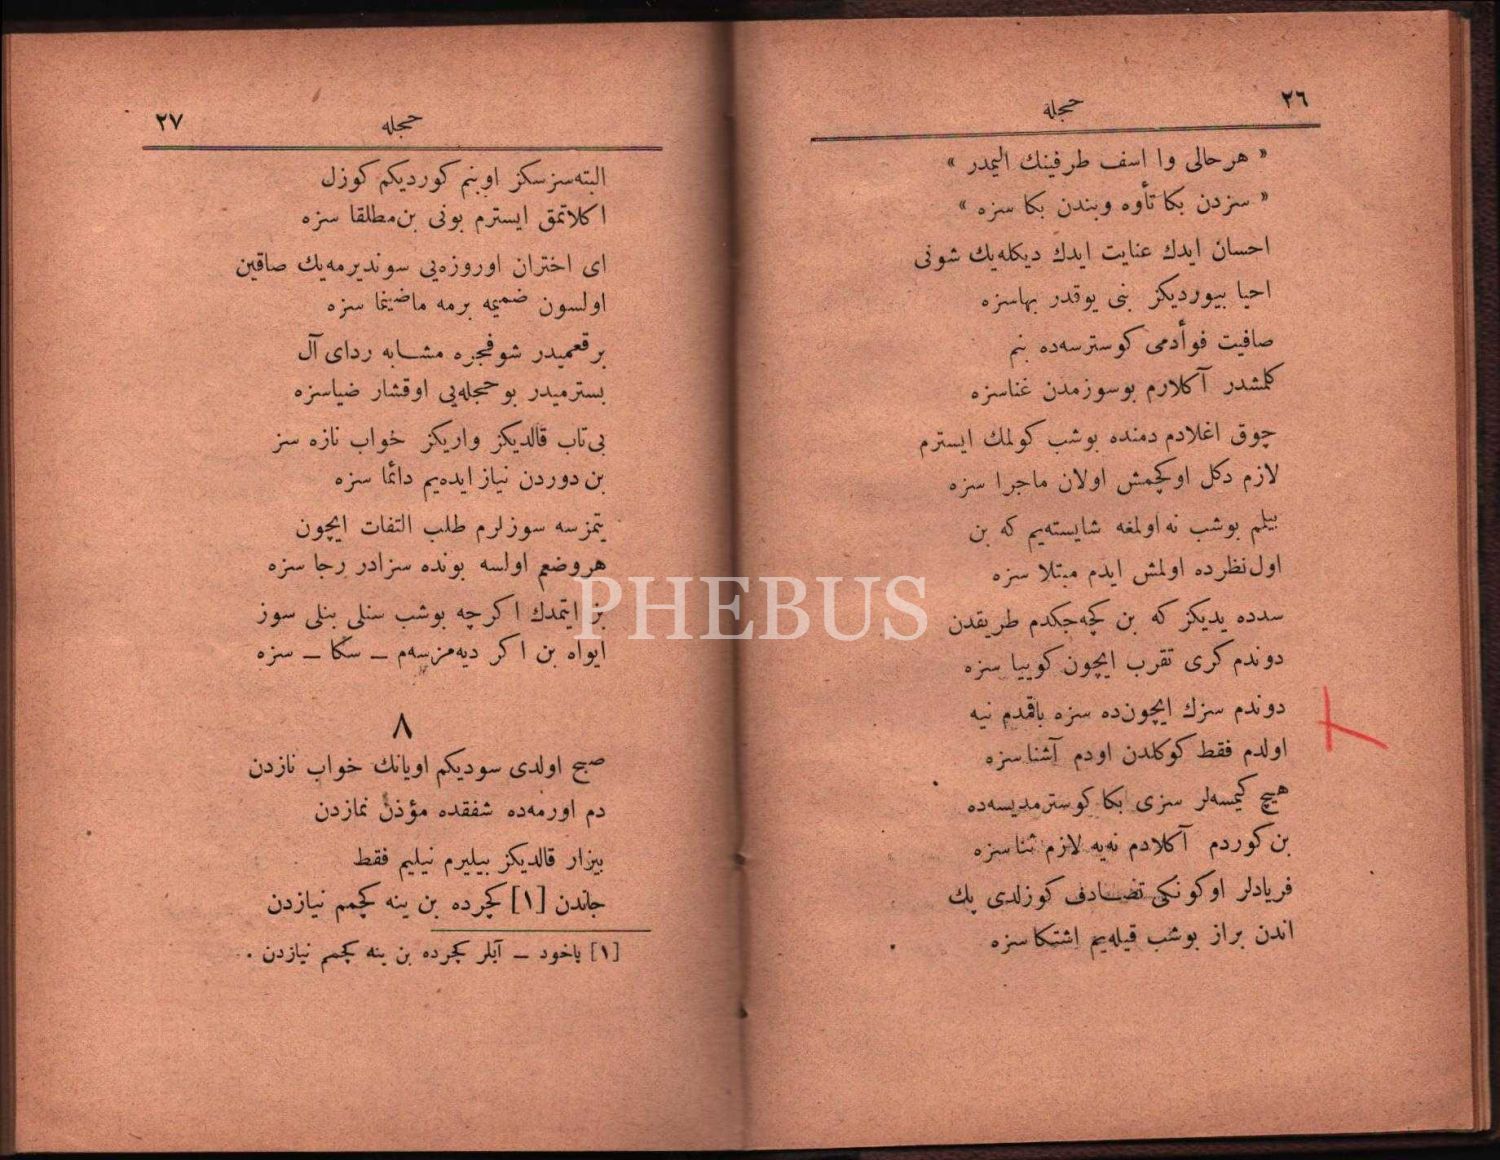 ٢٦
حجله
« هر حالى وا اسف طرفينك اليمدر »
« سزدن بكا تأوه وبندن بكا سزه »
احسان ايدك عنايت ايدك ديكله‌يك شونى
احيا بيورديكز بنى يوقدر بهاسزه
صافيت فوأدمى كوسترسه‌ده بنم
كلمشدر آكلارم بوسوزمدن غناسزه
چوق اغلادم دمنده بوشب كولمك ايسترم
لازم دكل اوكچمش اولان ماجرا سزه
بيلم بوشب نه اولمغه شايسته‌يم كه بن
اول‌نظرده اولمش ايدم مبتلا سزه
سدده يديكز كه بن كچه‌جكدم طريقدن
دوندم كرى تقرب ايچون كوييا سزه
دوندم سزك ايچون‌ده سزه باقمدم نيه
اولدم فقط كوكلدن اودم آشناسزه
هيچ كيمسه‌لر سزى بكا كوسترمديسه‌ده
بن كوردم آكلادم نه‌يه لازم ثناسزه
فريادلر اوكونكى تضـادف كوزلدى پك
اندن براز بوشب قيله‌يم اشتكاسزه
٢٧
حجله
البته‌سزسكز اوبنم كورديكم كوزل
اكلاتمق ايسترم بونى بن‌مطلقا سزه
اى اختران اوروزه‌يى سونديرمه‌يك صاقين
اولسون ضميمه برمه ماضيغا سزه
برقعميدر شوفجره مشـابه رداى آل
بسترميدر بوحجله‌يى اوقشار ضياسزه
بى‌تاب قالديكز واريكز خواب نازه سز
بن‌دوردن نياز ايده‌يم دائما سزه
يتمزسه سوزلرم طلب التفات ايچون
هروضعم اولسه بونده سزادر رجا سزه
بز ايتمدك اكرچه بوشب سنلى بنلى سوز
ايواه بن اكر ديه‌مزسه‌م ــ سكا ــ سزه
٨
صبح اولدى سوديكم اويانك خواب نازدن
دم اورمه‌ده شفقده مؤذن نمازدن
بيزار قالديكز بيليرم نيليم فقط
جاندن [١] كچرده بن ينه كچمم نيازدن
[١] ياخود ــ آيلر كچرده بن ينه كچمم نيازدن .
PHEBUS